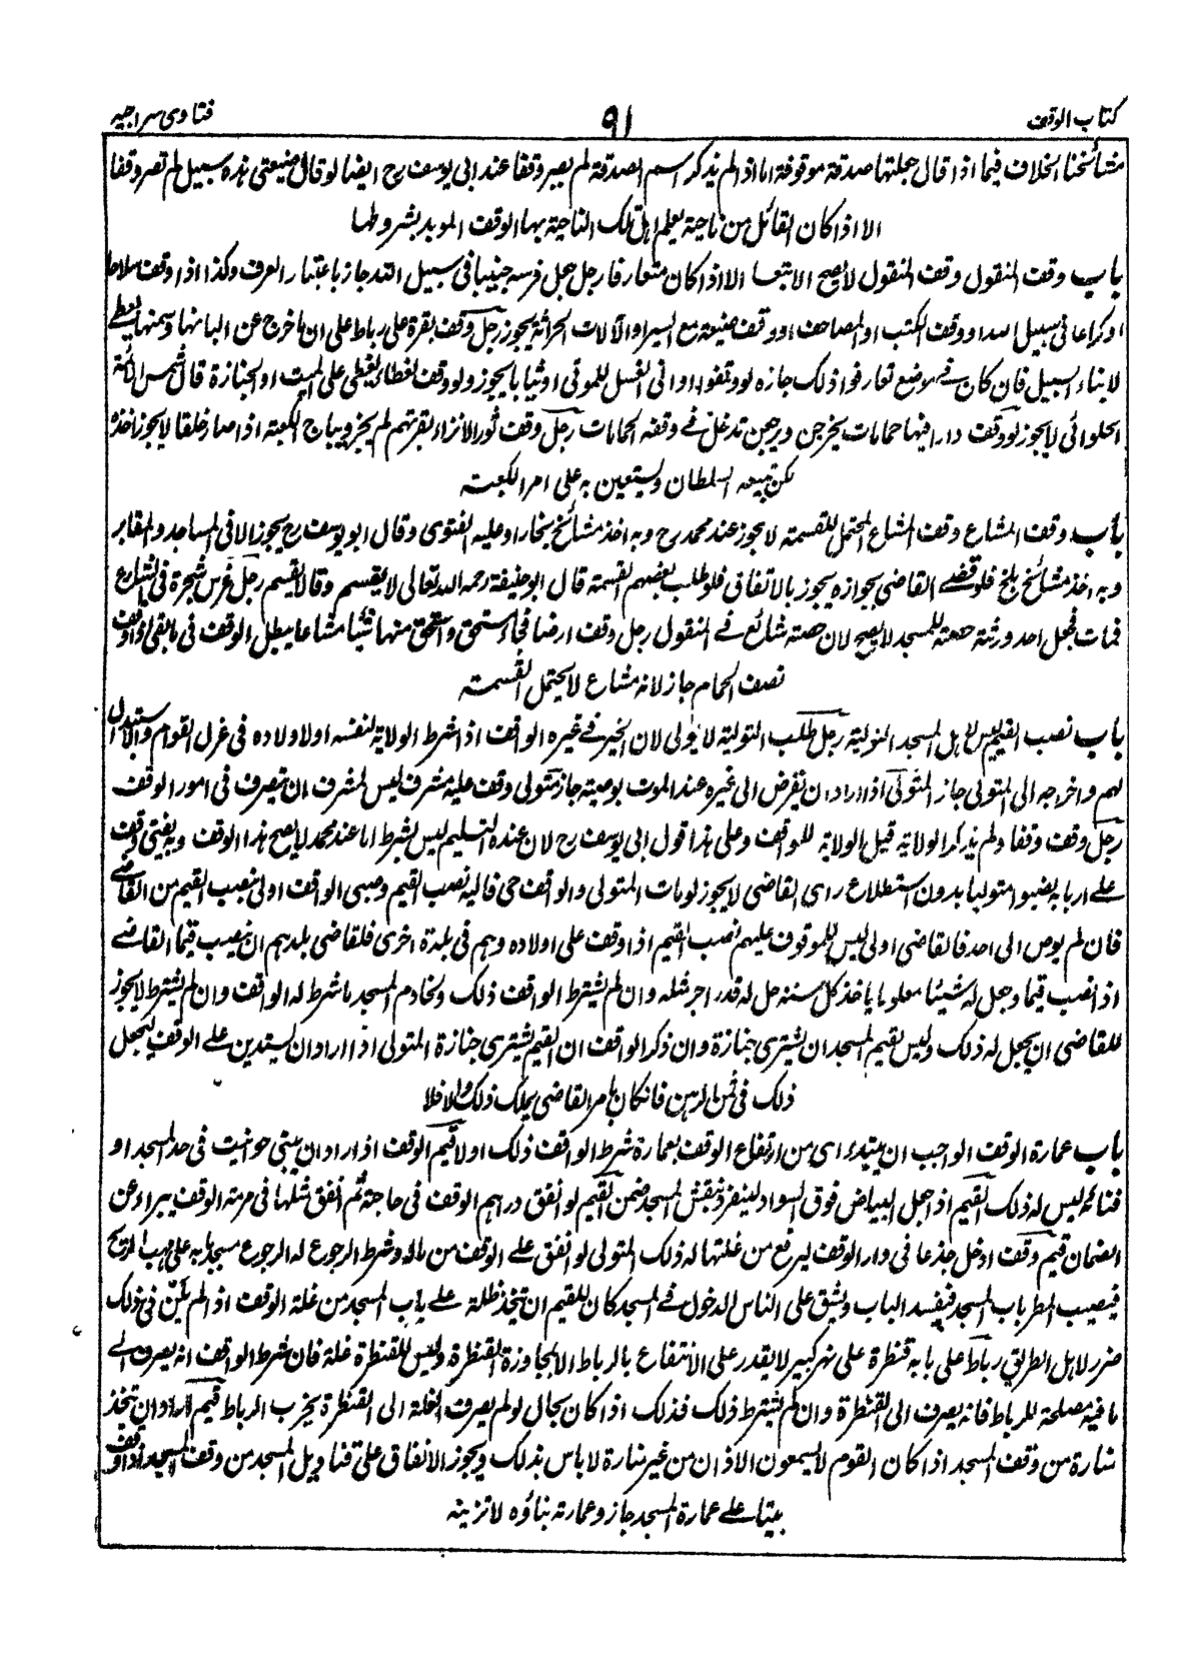 كتاب الوقف
٩١
فتاوى سراجيه
مشائخنا الخلاف فيما اذا قال جعلتها صدقة موقوفة اما اذا لم يذكر اسم الصدقة لم يصر وقفا عند ابى يوسف رح ايضا لو قال ضيعتى هذه سبيل لم تصر وقفا
الا اذا كان القائل من ناحية يعلم اهل تلك الناحية بها الوقف الموبد بشروطها
باب وقف المنقول وقف المنقول لا يصح الا تبعا الا اذا كان متعارفا رجل جعل فرسه حبيسا فى سبيل الله جاز باعتبار العرف وكذا اذا وقف سلاحا
او كراعا فى سبيل الله او وقف الكتب او المصاحف او وقف ضيعة مع السير والآلات الحراثة يجوز رجل وقف بقرة على رباط على ان ما خرج عن البانها وسمنها يعطى
لابناء السبيل فان كان فى موضع تعارفوا ذلك جاز ولو وقفوا اوانى الغسل للموتى او ثيابا يجوز ولو وقف لغطاء يغطى على الميت او الجنازة قال شمس الائمة
الحلوائى لا يجوز لو وقف دارا فيها حمامات يخرجن ويرجعن تدخل فى وقفه الحمامات رجل وقف ثورا لانزاء بقرتهم لم يجز ديباج الكعبة اذا صار خلقا لا يجوز اخذه
لكن يبيعه السلطان ويستعين به على امر الكعبة
باب وقف المشاع وقف المشاع المحتمل للقسمة لا يجوز عند محمد رح وبه اخذ مشائخ بخارا وعليه الفتوى وقال ابو يوسف رح يجوز الا فى المساجد والمقابر
وبه اخذ مشائخ بلخ فلو قضى القاضى بجوازه يجوز بالاتفاق فلو طلب بعضهم القسمة قال ابو حنيفة رحمه الله تعالى لا يقسم وقالا يقسم رجل غرس شجرة فى الشارع
فمات فجعل احد ورثته حصته للمسجد لا يصح لان حصته شائع فى المنقول رجل وقف ارضا فجاء مستحق واستحق منها شيئا مشاعا يبطل الوقف فى ما بقى لو وقف
نصف الحمام جاز لانه مشاع لا يحتمل القسمة
باب نصب القيم ليس لاهل المسجد التولية رجل طلب التولية لا يولى لان الخير فى غيره الواقف اذا شرط الولاية لنفسه او لاولاده فى عزل القوام والاستبدال
بهم واخراجه الى المتولى جاز المتولى اذا اراد ان يفوض الى غيره عند الموت بوصيته جاز متولى وقف عليه مشرف ليس للمشرف ان يتصرف فى امور الوقف
رجل وقف وقفا ولم يذكر الولاية قيل الولاية للواقف وعلى هذا قول ابى يوسف رح لان عنده التسليم ليس بشرط اما عند محمد لا يصح هذا الوقف وبه يفتى وقف
على اربابه نصبوا متوليا بدون استطلاع راى القاضى لا يجوز لو مات المتولى والواقف حى فاليه نصب القيم وصى الواقف اولى بنصب القيم من القاضى
فان لم يوص الى احد فالقاضى اولى ليس للموقوف عليهم نصب القيم اذا وقف على اولاده وهم فى بلدة اخرى فلقاضى بلدهم ان ينصب قيما القاضى
اذا نصب قيما وجعل له شيئا معلوما ياخذ كل سنة حل له قدر اجر مثله وان لم يشترط الواقف ذلك ولخادم المسجد ما شرط له الواقف وان لم يشترط لا يجوز
للقاضى ان يجعل له ذلك وليس لقيم المسجد ان يشترى جنازة وان ذكر الواقف ان القيم يشترى جنازة المتولى اذا اراد ان يستدين على الوقف ليجعل
ذلك فى ثمن الرهن فان كان بامر القاضى يملك ذلك والا فلا
باب عمارة الوقف الواجب ان يبتدء اى من ارتفاع الوقف بعمارة شرط الواقف ذلك او لا قيم الوقف اذا اراد ان يبنى حوانيت فى حد المسجد او
فنائه ليس له ذلك القيم اذا جعل البياض فوق السواد لينقش المسجد ضمن القيم لو انفق دراهم الوقف فى حاجة ثم انفق مثلها فى مرمة الوقف يبراء عن
الضمان قيم وقف ادخل جذعا فى دار الوقف ليرفع من غلتها له ذلك المتولى لو انفق على الوقف من ماله وشرط الرجوع له الرجوع مسجد بابه على مهب الريح
فيصيب المطر باب المسجد فيفسد الباب ويشق على الناس الدخول فى المسجد كان للقيم ان يتخذ ظلة على باب المسجد من غلة الوقف اذا لم يكن فى ذلك
ضرر لاهل الطريق رباط على بابه قنطرة على نهر كبير لا يقدر على الانتفاع بالرباط الا بمجاوزة القنطرة وليس للقنطرة غلة فان شرط الواقف انه يصرف الى
ما فيه مصلحة للرباط فانه يصرف الى القنطرة وان لم يشترط ذلك فكذلك اذا كان بحال لو لم يصرف الغلة الى القنطرة يخرب الرباط قيم اراد ان يتخذ
منارة من وقف المسجد اذا كان القوم لا يسمعون الاذان من غير منارة لا باس بذلك ويجوز الانفاق على قناديل المسجد من وقف المسجد اذا وقف
بيتا على عمارة المسجد جاز وعمارته بناؤه لا تزيينه